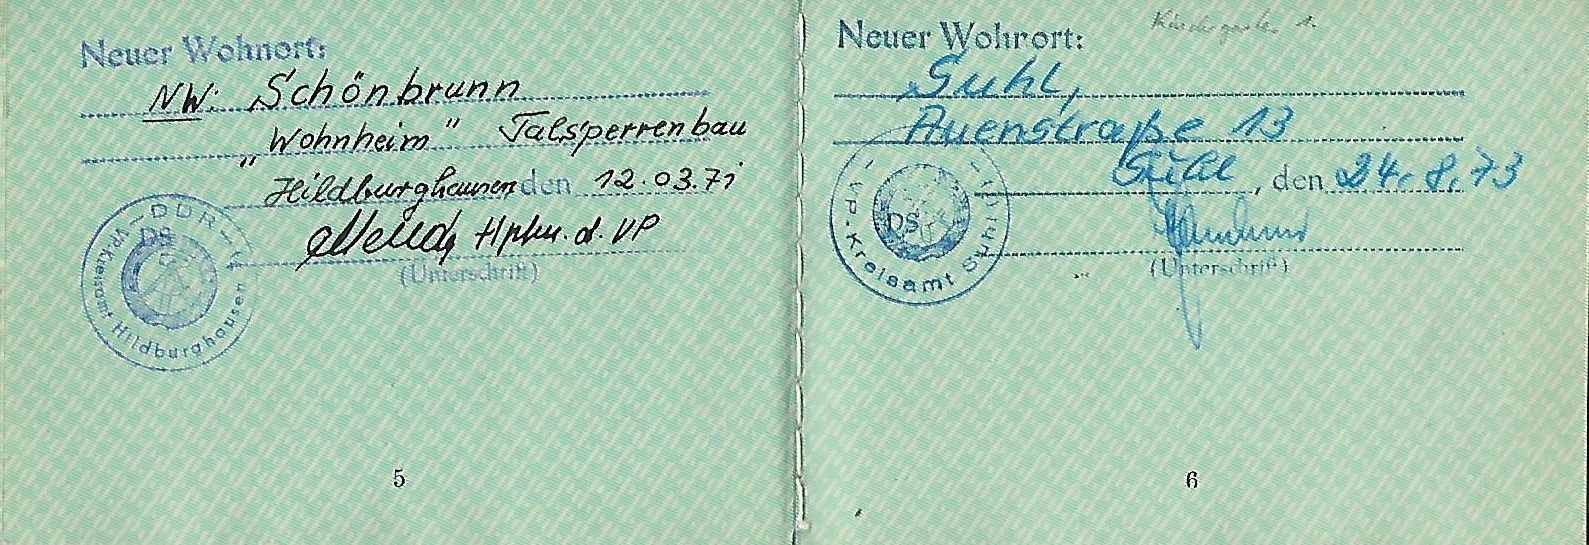 Neuer Wohnort:
NW: Schönbrunn
"Wohnheim" Talsperrenbau
Hildburghausen den 12.03.71
Hptm. d. VP
(Unterschrift)
DDR
DS
VP-Kreisamt Hildburghausen
5
Kindergarten 1.
Neuer Wohnort:
Suhl,
Auenstraße 13
Suhl, den 24.8.73
(Unterschrift)
DS
VP-Kreisamt Suhl
6